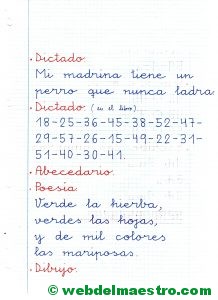 . Dictado.
Mi madrina tiene un
perro que nunca ladra.
. Dictado. (en el libro)
18-25-36-45-38-52-47-
29-57-26-15-49-22-31-
51-40-30-41.
. Abecedario.
. Poesía.
Verde la hierba,
verdes las hojas,
y de mil colores
las mariposas.
. Dibujo.
© webdelmaestro.com